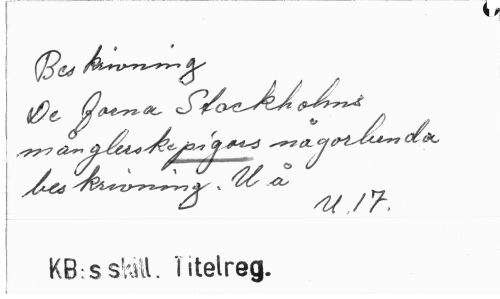 Beskrivning
De forna Stockholms
månglerskepigors någorlunda
beskrivning. U å
U.17.
KB:s skill. Titelreg.